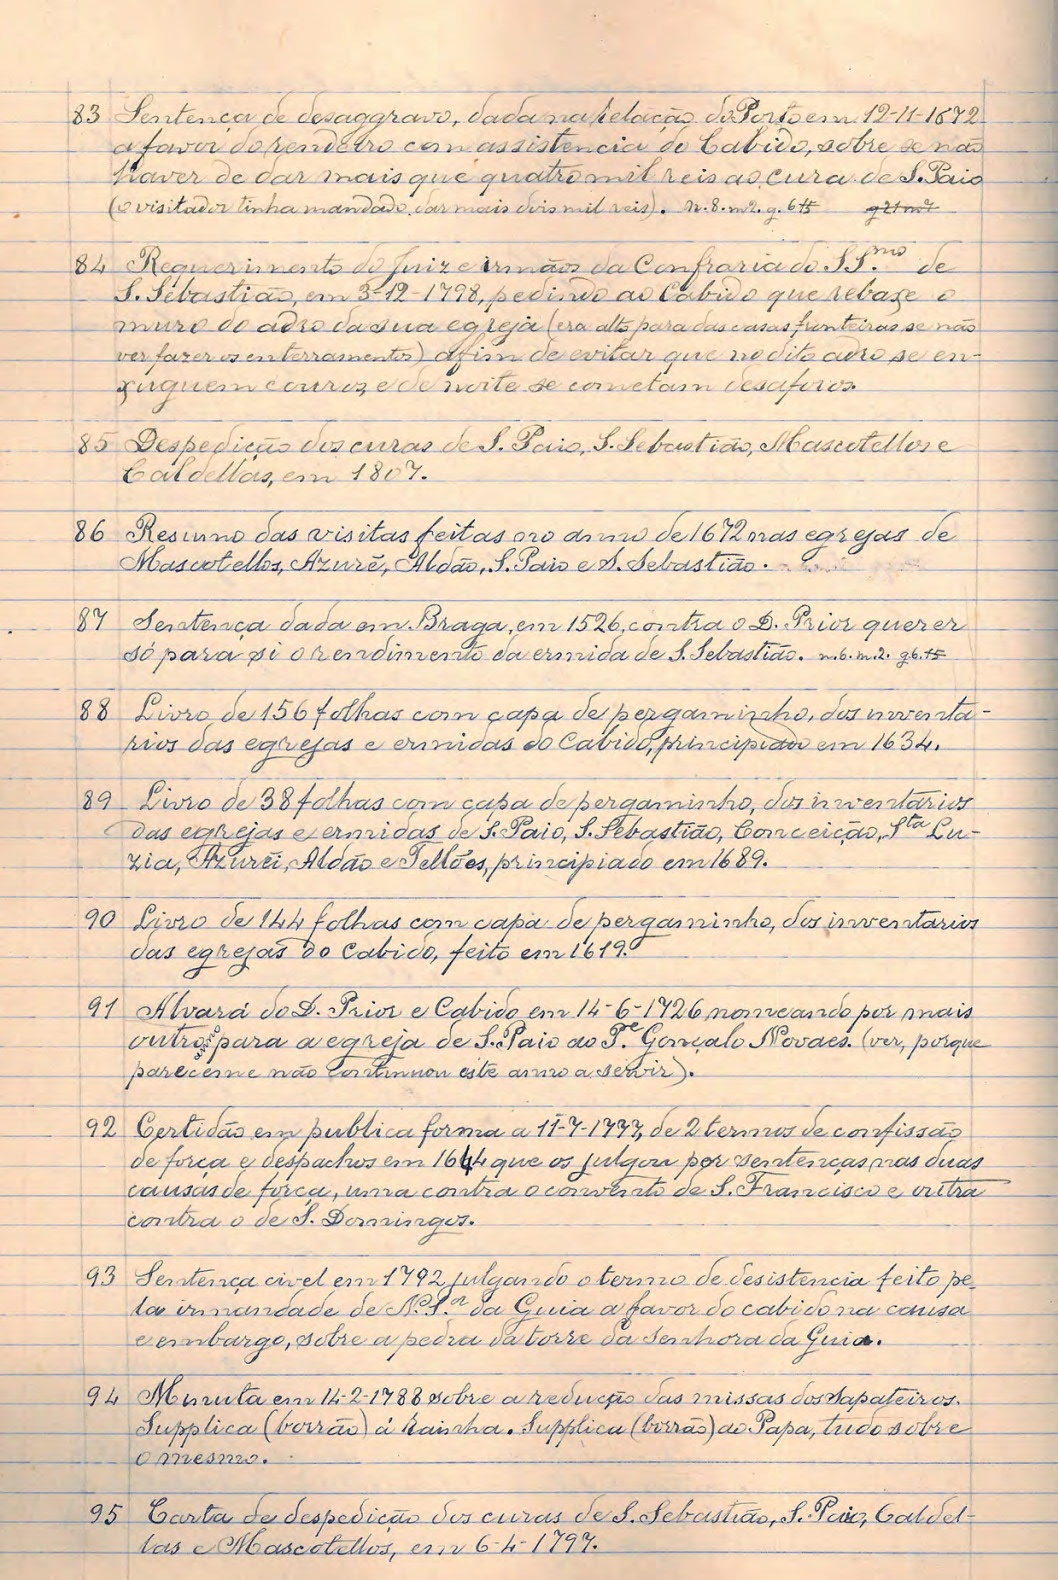 83 Sentença de desaggravo, dada na Relação do Porto em 12-11-1672
a favor do rendeiro com assistencia do Cabido, sobre se não
haver de dar mais que quatro mil reis ao cura de S. Paio
(o visitador tinha mandado dar mais dois mil reis). n. 8. m2. g. 6
84 Requerimento do Juiz e irmãos da Confraria do SS.mo de
S. Sebastião, em 3-12-1798, pedindo ao Cabido que rebaxe o
muro do adro da sua egreja (era alto para das casas fronteiras se não
ver fazer os enterramentos) afim de evitar que no dito adro se en-
xuguem couros, e de noite se cometam desaforos.
85 Despedição dos curas de S. Paio, S. Sebastião, Mascotellos e
Caldellas, em 1807.
86 Resumo das visitas feitas no anno de 1672 nas egrejas de
Mascotellos, Azurẽ, Aldão, S. Paio e S. Sebastião.
87 Sentença dada em Braga, em 1526, contra o D. Prior querer
só para si o rendimento da ermida de S. Sebastião. n. 6. m. 2. g 6.
88 Livro de 156 folhas com capa de pergaminho, dos inventa-
rios das egrejas e ermidas do Cabido, principiado em 1634.
89 Livro de 38 folhas com capa de pergaminho, dos inventarios
das egrejas e ermidas de S. Paio, S. Sebastião, Conceição, Sta Lu-
zia, Azurẽi, Aldão e Tellões, principiado em 1689.
90 Livro de 144 folhas com capa de pergaminho, dos inventarios
das egrejas do Cabido, feito em 1619.
91 Alvará do D. Prior e Cabido em 14-6-1726 nomeando por mais
outro anno para a egreja de S. Paio ao Pe. Gonçalo Novaes. (ver, porque
pareceme não continuou este anno a servir).
92 Certidão em publica forma a 11-7-1777, de 2 termos de confissão
de força e despachos em 1644 que os julgou por sentenças nas duas
causas de força, uma contra o convento de S. Francisco e outra
contra o de S. Domingos.
93 Sentença civel em 1792 julgando o termo de desistencia feito pe-
la irmandade de N. S.ra da Guia a favor do cabido na causa
e embargo, sobre a pedra da torre da Senhora da Guia.
94 Minuta em 14-2-1788 sobre a redução das missas dos Sapateiros.
Supplica (borrão) á Rainha. Supplica (borrão) ao Papa, tudo sobre
o mesmo.
95 Carta de despedição dos curas de S. Sebastião, S. Paio, Caldel-
las e Mascotellos, em 6-4-1797.